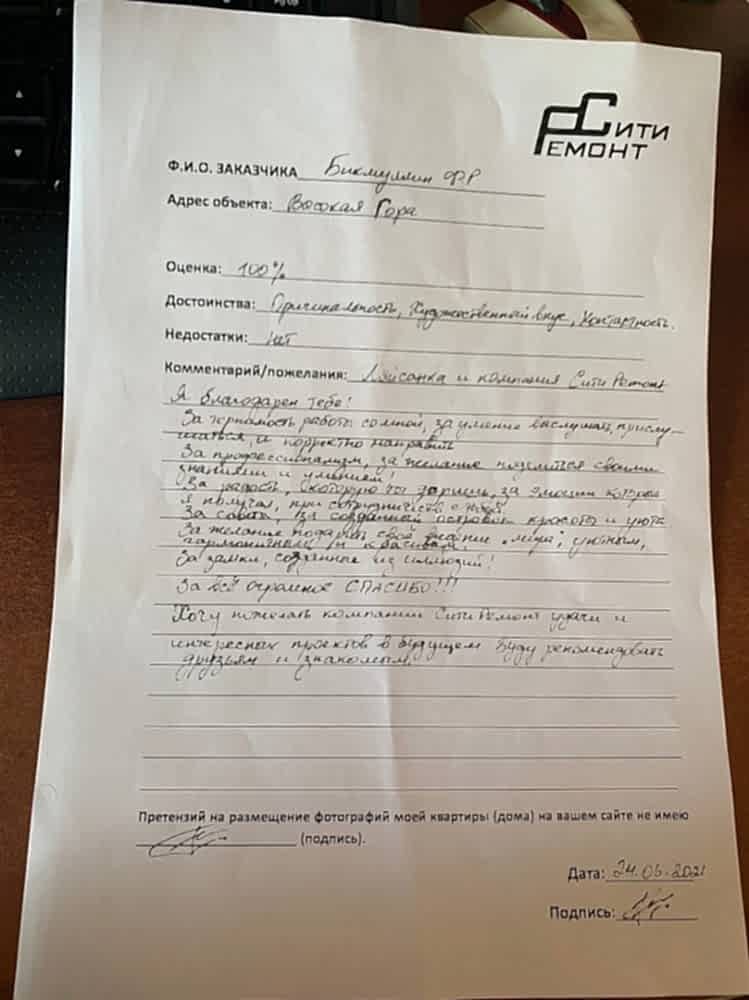 СИТИ
РЕМОНТ
Ф.И.О. ЗАКАЗЧИКА Бикмуллин Ф.Р
Адрес объекта: Высокая Гора
Оценка: 100%
Достоинства: Оригинальность, Художественный вкус, Контактность.
Недостатки: Нет
Комментарий/пожелания: Ляйсанка и компания Сити Ремонт
Я благодарен тебе!
За работы со мной, за умение выслушать, прислу-
шаться, и корректно направить
За профессионализм, за желание поделиться своими
знаниями и умением!
За радость, которую ты даришь, за эмоции которые
я получал, при сотрудничестве с тобой.
За советы, за созданный островок красоты и уюта
За желание подарить своё "мира", уютным,
гармоничным и красивым.
За замки, созданные из иллюзий!
За всё огромное СПАСИБО!!!
Хочу пожелать компании Сити Ремонт удачи и
интересных проектов в будущем Буду рекомендовать
друзьям и знакомым.
Претензий на размещение фотографий моей квартиры (дома) на вашем сайте не имею
(подпись).
Дата: 24.06.2021
Подпись: